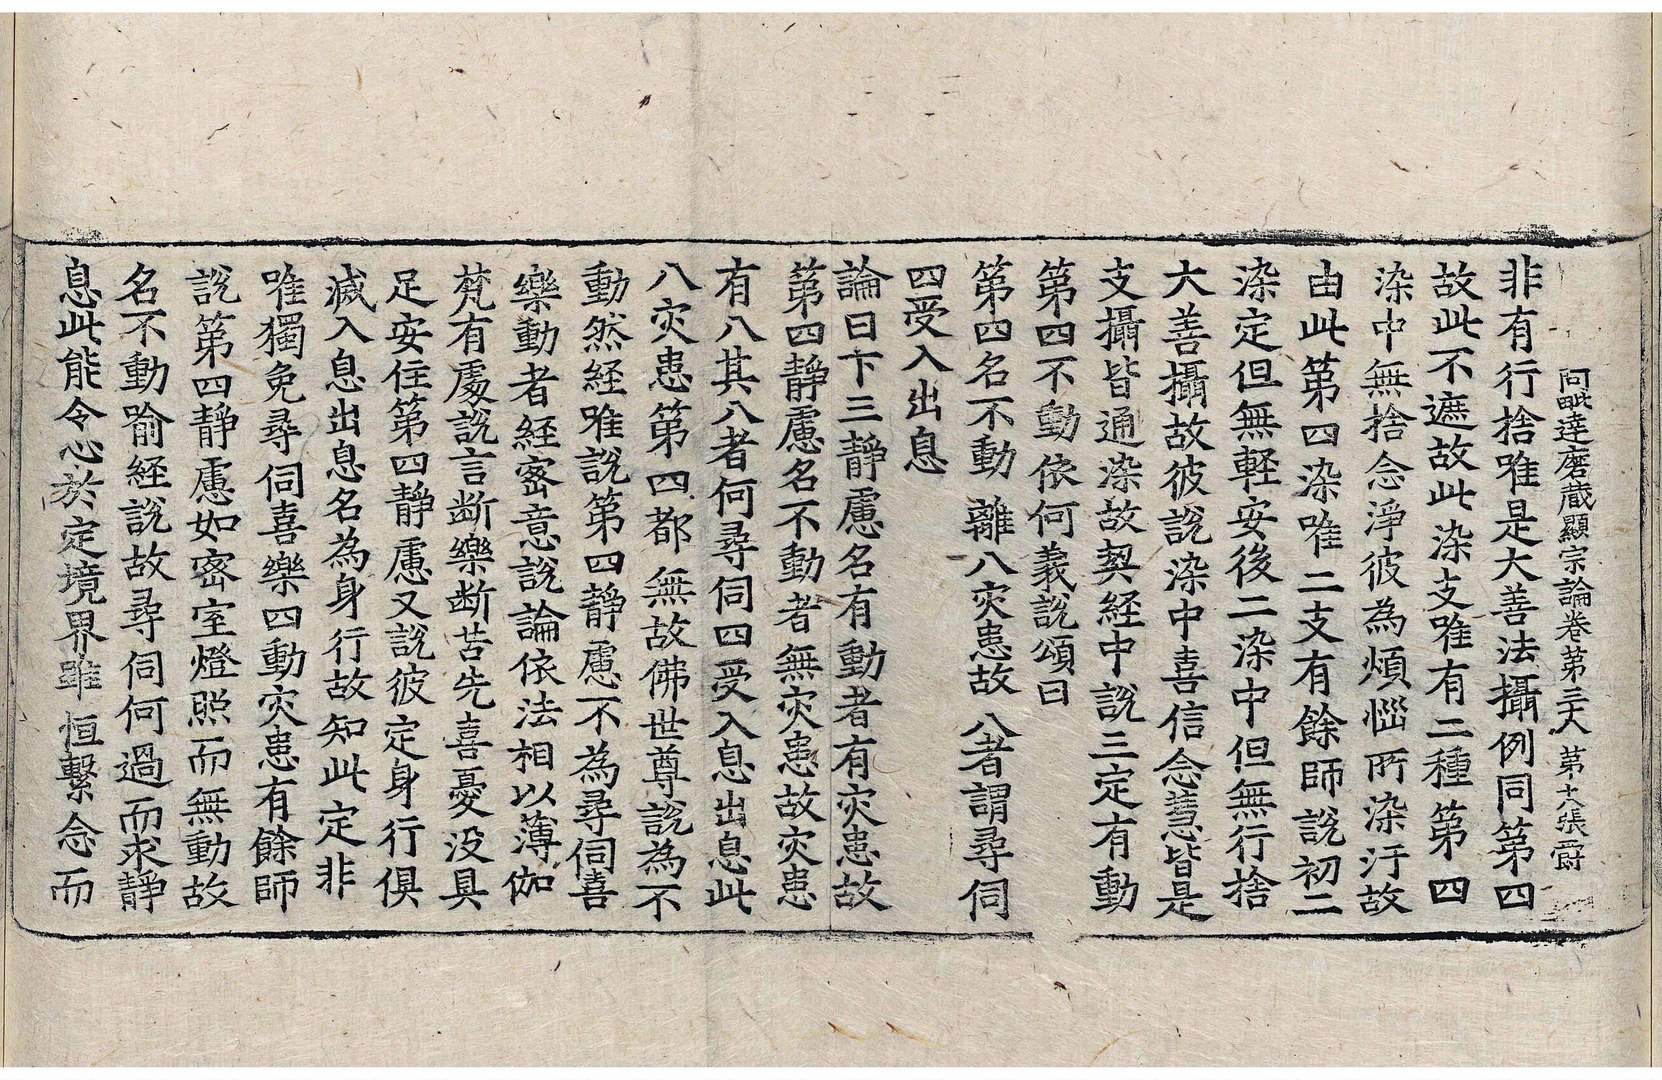 阿毗達磨藏顯宗論卷第三十八 第十八張 爵
非有行捨唯是大善法攝例同第四
故此不遮故此染支唯有二種第四
染中無捨念淨彼為煩惱所染汙故
由此第四染唯二支有餘師說初二
染定但無輕安後二染中但無行捨
大善攝故彼說染中喜信念慧皆是
支攝皆通染故契經中說三定有動
第四不動依何義說頌曰
第四名不動 離八灾患故 八者謂尋伺
四受入出息
論曰下三靜慮名有動者有灾患故
第四靜慮名不動者無灾患故灾患
有八其八者何尋伺四受入息出息此
八灾患第四都無故佛世尊說為不
動然經唯說第四靜慮不為尋伺喜
樂動者經密意說論依法相以薄伽
梵有處說言断樂断苦先喜憂没具
足安住第四靜慮又說彼定身行俱
滅入息出息名為身行故知此定非
唯獨免尋伺喜樂四動灾患有餘師
說第四靜慮如密室燈照而無動故
名不動喻經說故尋伺何過而求靜
息此能令心於定境界雖恒繫念而